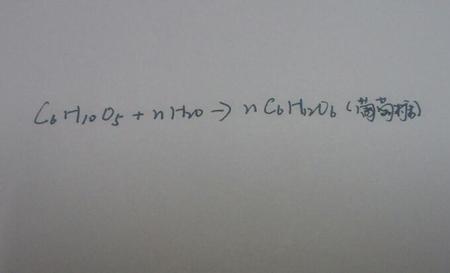 C₆H₁₀O₅ + nH₂O → nC₆H₁₂O₆ (葡萄糖)